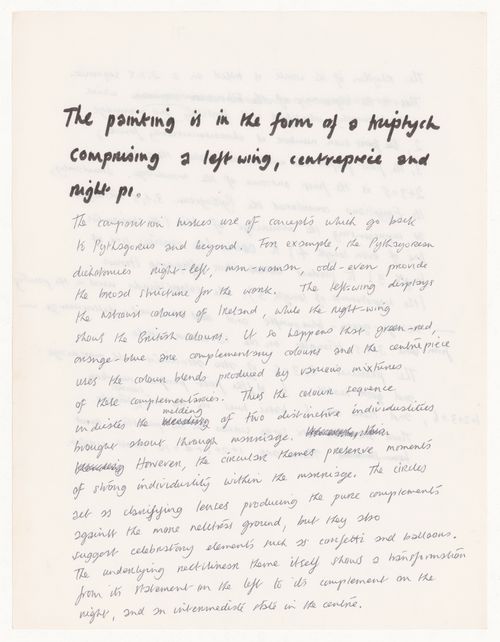 The painting is in the form of a triptych
comprising a left wing, centrepiece and
right pi.
The composition makes use of concepts which go back
to Pythagoras and beyond. For example, the Pythagorean
dichotomies right-left, man-woman, odd-even provide
the broad structure for the work. The left-wing displays
the national colours of Ireland, while the right-wing
shows the British colours. It so happens that green-red,
orange-blue are complementary colours and the centrepiece
uses the colour blends produced by various mixtures
of these complementaries. Thus the colour sequence
melding
indicates the blending of two distinctive individualities
brought about through marriage.
However, the circular themes preserve moments
of strong individuality within the marriage. The circles
act as clarifying lenses producing the pure complements
against the more neutral ground, but they also
suggest celebratory elements such as confetti and balloons.
The underlying rectilinear theme itself shows a transformation
from its statement on the left to its complement on the
right, and an intermediate state in the centre.